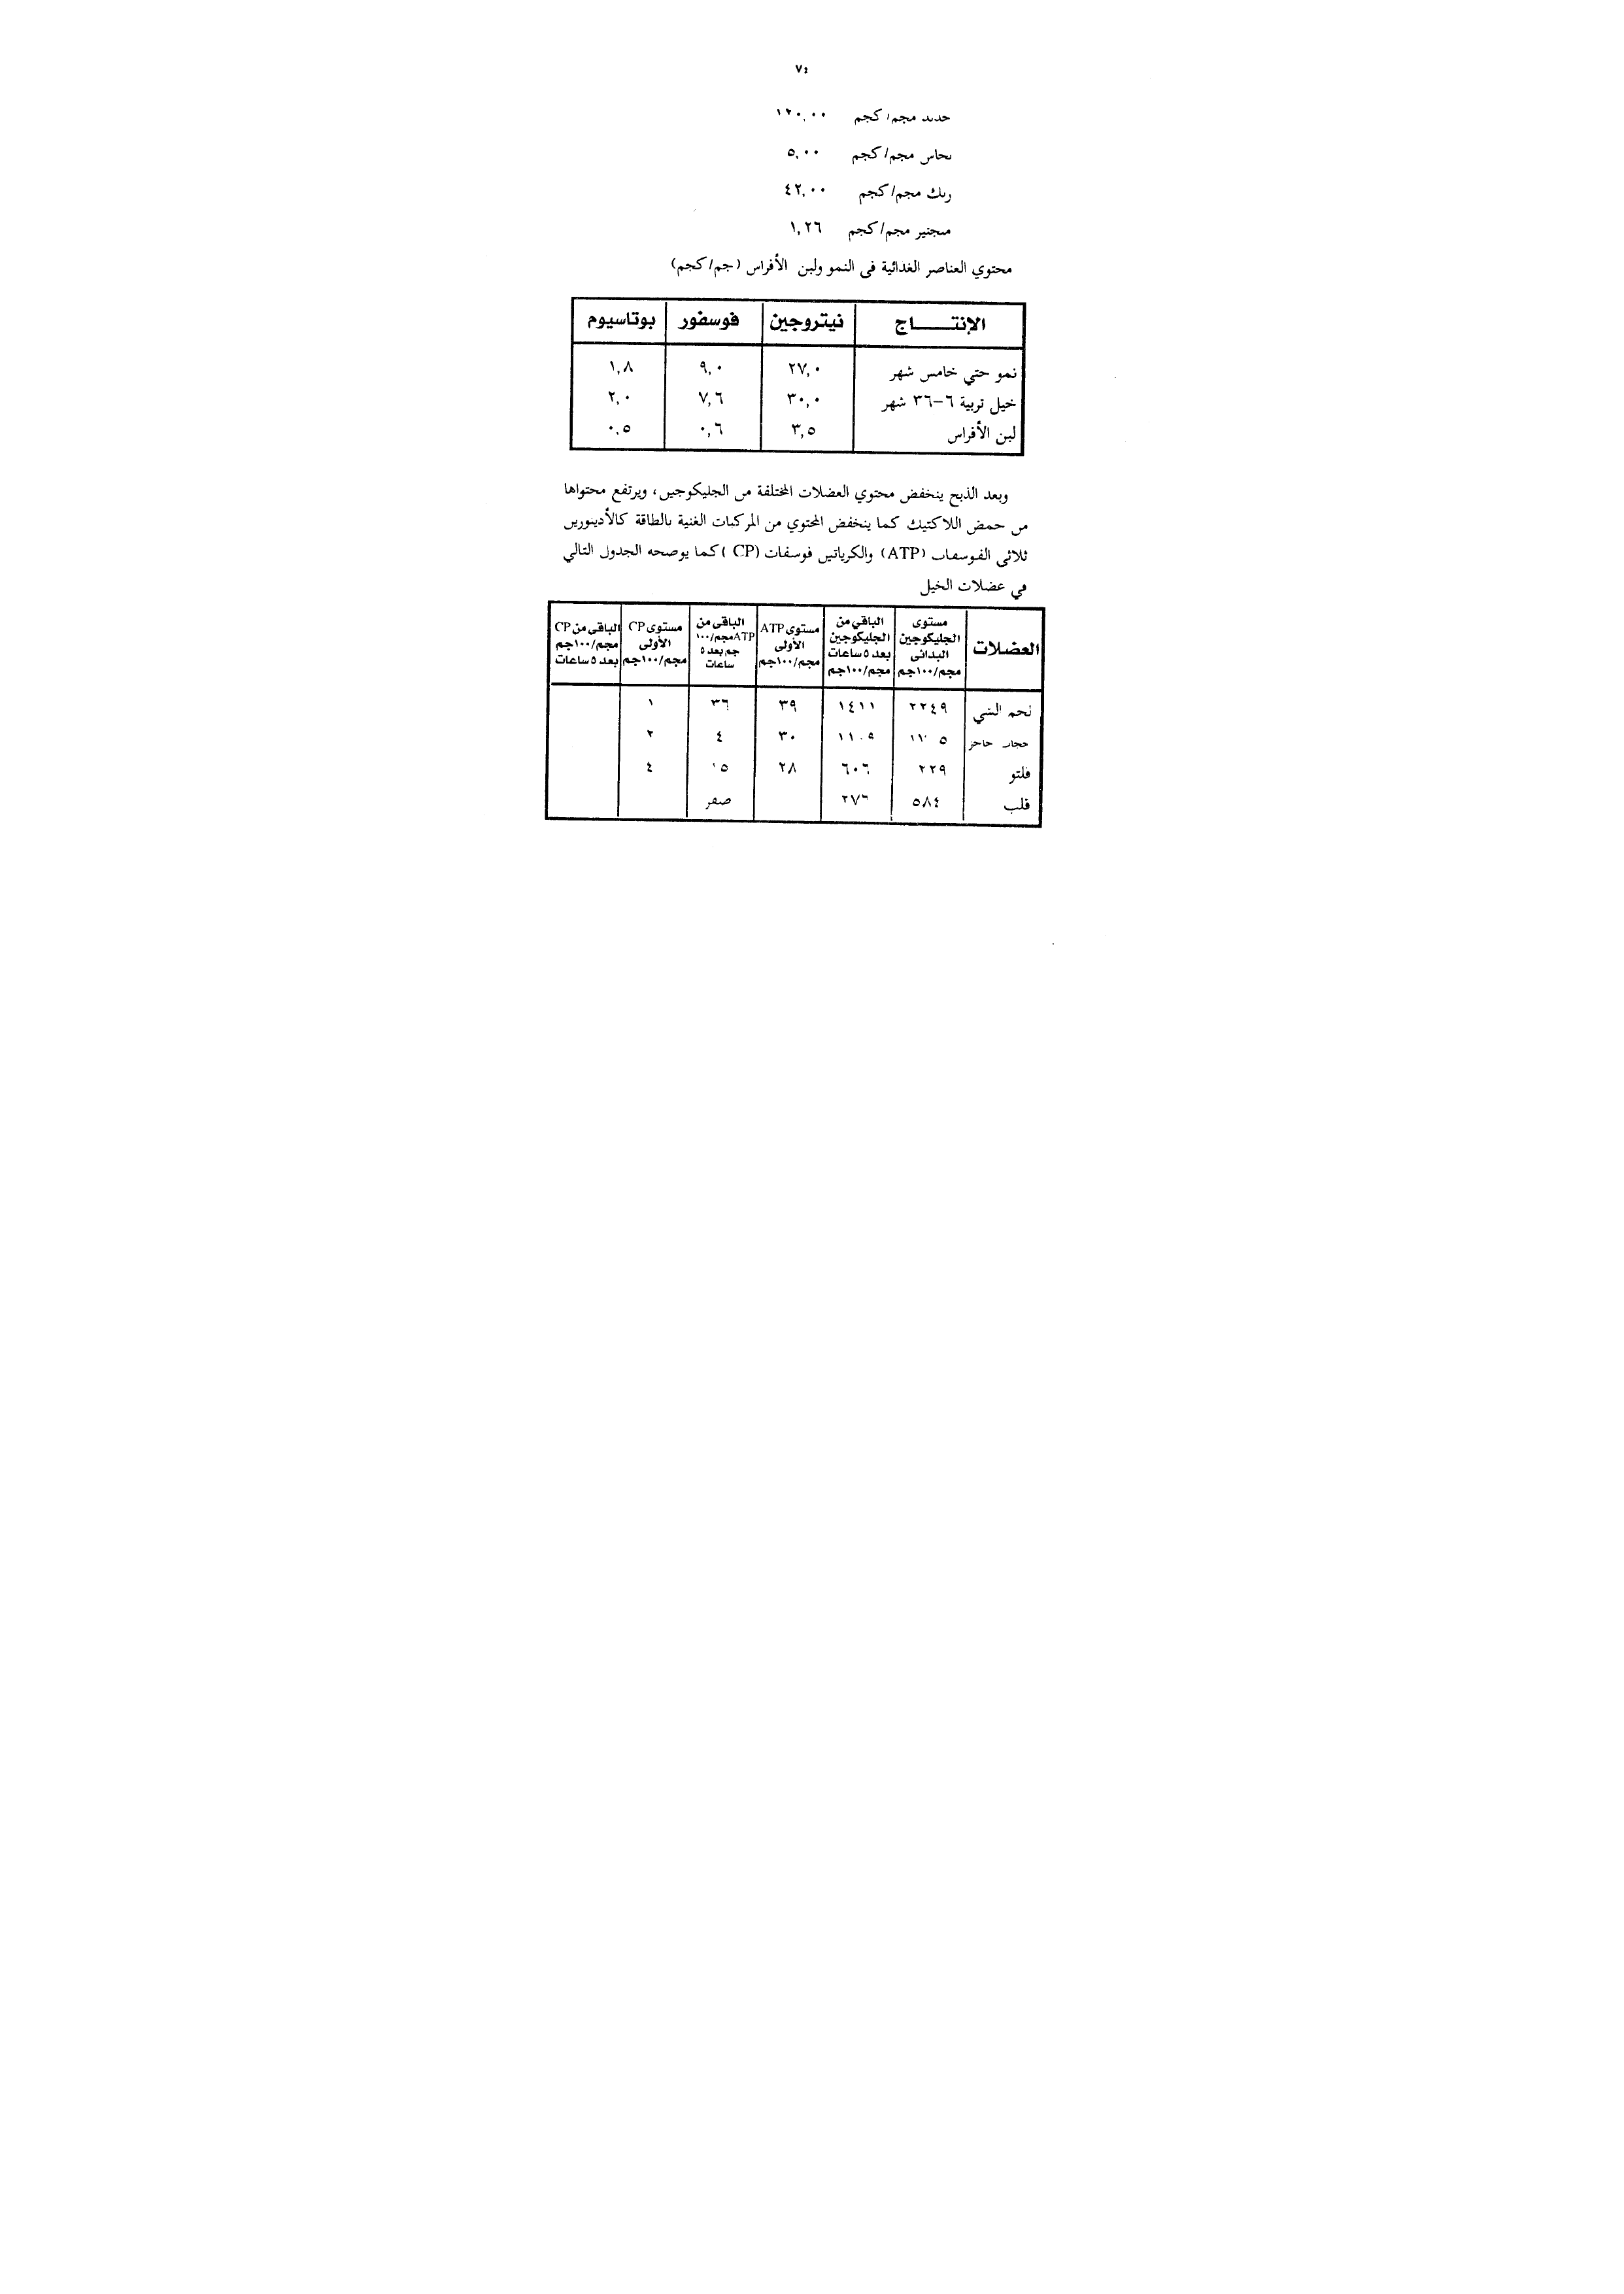 ٧٤
حديد مجم/كجم ١٢٠,٠٠
نحاس مجم/كجم ٥,٠٠
زنك مجم/كجم ٤٢,٠٠
منجنيز مجم/كجم ١,٢٦
محتوي العناصر الغذائية فى النمو ولبن الأفراس (جم/كجم)
الإنتـــــاج نيتروجين فوسفور بوتاسيوم
نمو حتي خامس شهر ٢٧,٠ ٩,٠ ١,٨
خيل تربية ٦–٣٦ شهر ٣٠,٠ ٧,٦ ٢,٠
لبن الأفراس ٣,٥ ٠,٦ ٠,٥
وبعد الذبح ينخفض محتوي العضلات المختلفة من الجليكوجين، ويرتفع محتواها
من حمض اللاكتيك كما ينخفض المحتوي من المركبات الغنية بالطاقة كالأدينوزين
ثلاثى الفوسفات (ATP) والكرياتين فوسفات (CP) كما يوضحه الجدول التالي
في عضلات الخيل
العضلات مستوى الجليكوجين البدائى مجم/١٠٠جم الباقي من الجليكوجين بعد ٥ ساعات مجم/١٠٠جم مستوى ATP الأولى مجم/١٠٠جم الباقى من ATP مجم/١٠٠ جم بعد ٥ ساعات مستوى CP الأولى مجم/١٠٠جم الباقى من CP مجم/١٠٠جم بعد ٥ ساعات
لحم الشي ٢٢٤٩ ١٤١١ ٣٩ ٣٦ ١
حجاب حاجز ١١٠٩ ٣٠ ٤ ٢
فلتو ٢٢٩ ٦٠٦ ٢٨ ٤
قلب ٥٨٤ ٢٧٦ صفر